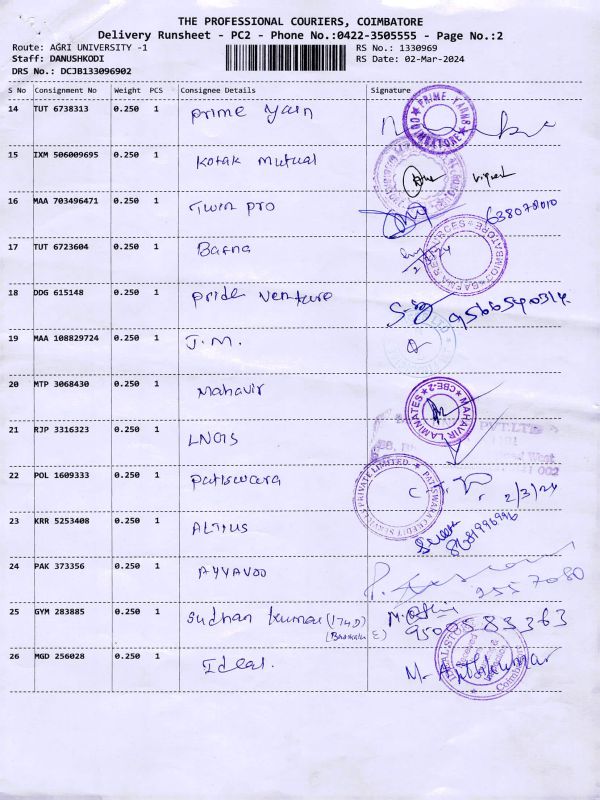 THE PROFESSIONAL COURIERS, COIMBATORE
Delivery Runsheet - PC2 - Phone No.:0422-3505555 - Page No.:2
Route: AGRI UNIVERSITY -1
RS No.: 1330969
Staff: DANUSHKODI
RS Date: 02-Mar-2024
DRS No.: DCJB133096902
S No Consignment No Weight PCS Consignee Details Signature
14 TUT 6738313 0.250 1 Prime Yarn
PRIME YARNS COIMBATORE
15 IXM 506009695 0.250 1 Kotak Mutual
16 MAA 703496471 0.250 1 Twin Pro
17 TUT 6723604 0.250 1 Barna
2/3/24
18 DDG 615148 0.250 1 Pride Venture
19 MAA 108829724 0.250 1 J.M.
20 MTP 3068430 0.250 1 Mahavir
MAHAVIR LAMINATES CBE-2
21 RJP 3316323 0.250 1
PVT.LTD
22 POL 1609333 0.250 1 Patiswara 2/3/24
PATISWARA CREDIT SERV PRIVATE LIMITED
23 KRR 5253408 0.250 1
24 PAK 373356 0.250 1 AYYAVOO
25 GYM 283885 0.250 1 Sudhan Kumar (174D) 9500583363
26 MGD 256028 0.250 1 Ideal.